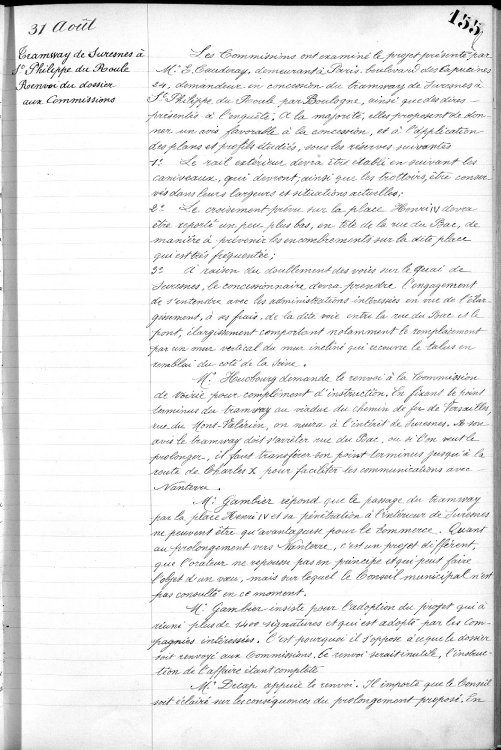 155
31 Août
Tramway de Suresnes à
St Philippe du Roule
Renvoi du dossier
aux Commissions
Les Commissions ont examiné le projet présenté par
Mr. E. Caudray, demeurant à Paris, boulevard des Capucines
24, demandeur en concession du tramway de Suresnes à
St Philippe du Roule par Boulogne, ainsi que des dires
présentés à l'enquête. A la majorité, elles proposent de don-
ner un avis favorable à la concession, et à l'application
des plans et profils étudiés, sous les réserves suivantes
1o Le rail extérieur devra être établi en suivant les
caniveaux, qui devront, ainsi que les trottoirs, être conser-
vés dans leurs largeurs et situations actuelles;
2o Le croisement prévu sur la place Henri IV devra
être reporté un peu plus bas, en tête de la rue du Bac, de
manière à prévenir les encombrements sur la dite place
qui est très fréquentée;
3o A raison du doublement des voies sur le Quai de
Suresnes, le concessionnaire devra prendre l'engagement
de s'entendre avec les administrations intéressées en vue de l'élar-
gissement, à ses frais, de la dite voie entre la rue du Bac et le
pont, élargissement comportant notamment le remplacement
par un mur vertical du mur incliné qui recouvre le talus en
remblai du coté de la Seine.
Mr. Hucbourg demande le renvoi à la Commission
de voirie pour complément d'instruction. En fixant le point
terminus du tramway au viaduc du chemin de fer de Versailles,
rue du Mont-Valérien, on nuira à l'intérêt de Suresnes. A son
avis le tramway doit s'arrêter rue du Bac, ou si l'on veut le
prolonger, il faut transférer son point terminus jusqu'à la
route de Charles X pour faciliter les communications avec
Nanterre.
Mr. Gambier répond que le passage du tramway
par la place Henri IV et sa pénétration à l'intérieur de Suresnes
ne peuvent être qu'avantageuse pour le Commerce. Quant
au prolongement vers Nanterre, c'est un projet différent,
que l'orateur ne repousse pas en principe et qui peut faire
l'objet d'un vœu, mais sur lequel le Conseil municipal n'est
pas consulté en ce moment.
Mr. Gambier insiste pour l'adoption du projet qui a
réuni plus de 1400 signatures et qui est adopté par les Com-
pagnies intéressées. C'est pourquoi il s'oppose à ce que le dossier
soit renvoyé aux Commissions, le renvoi serait inutile, l'instruc-
tion de l'affaire étant complète
Mr. Decap appuie le renvoi. Il importe que le Conseil
soit éclairé sur les conséquences du prolongement proposé. En